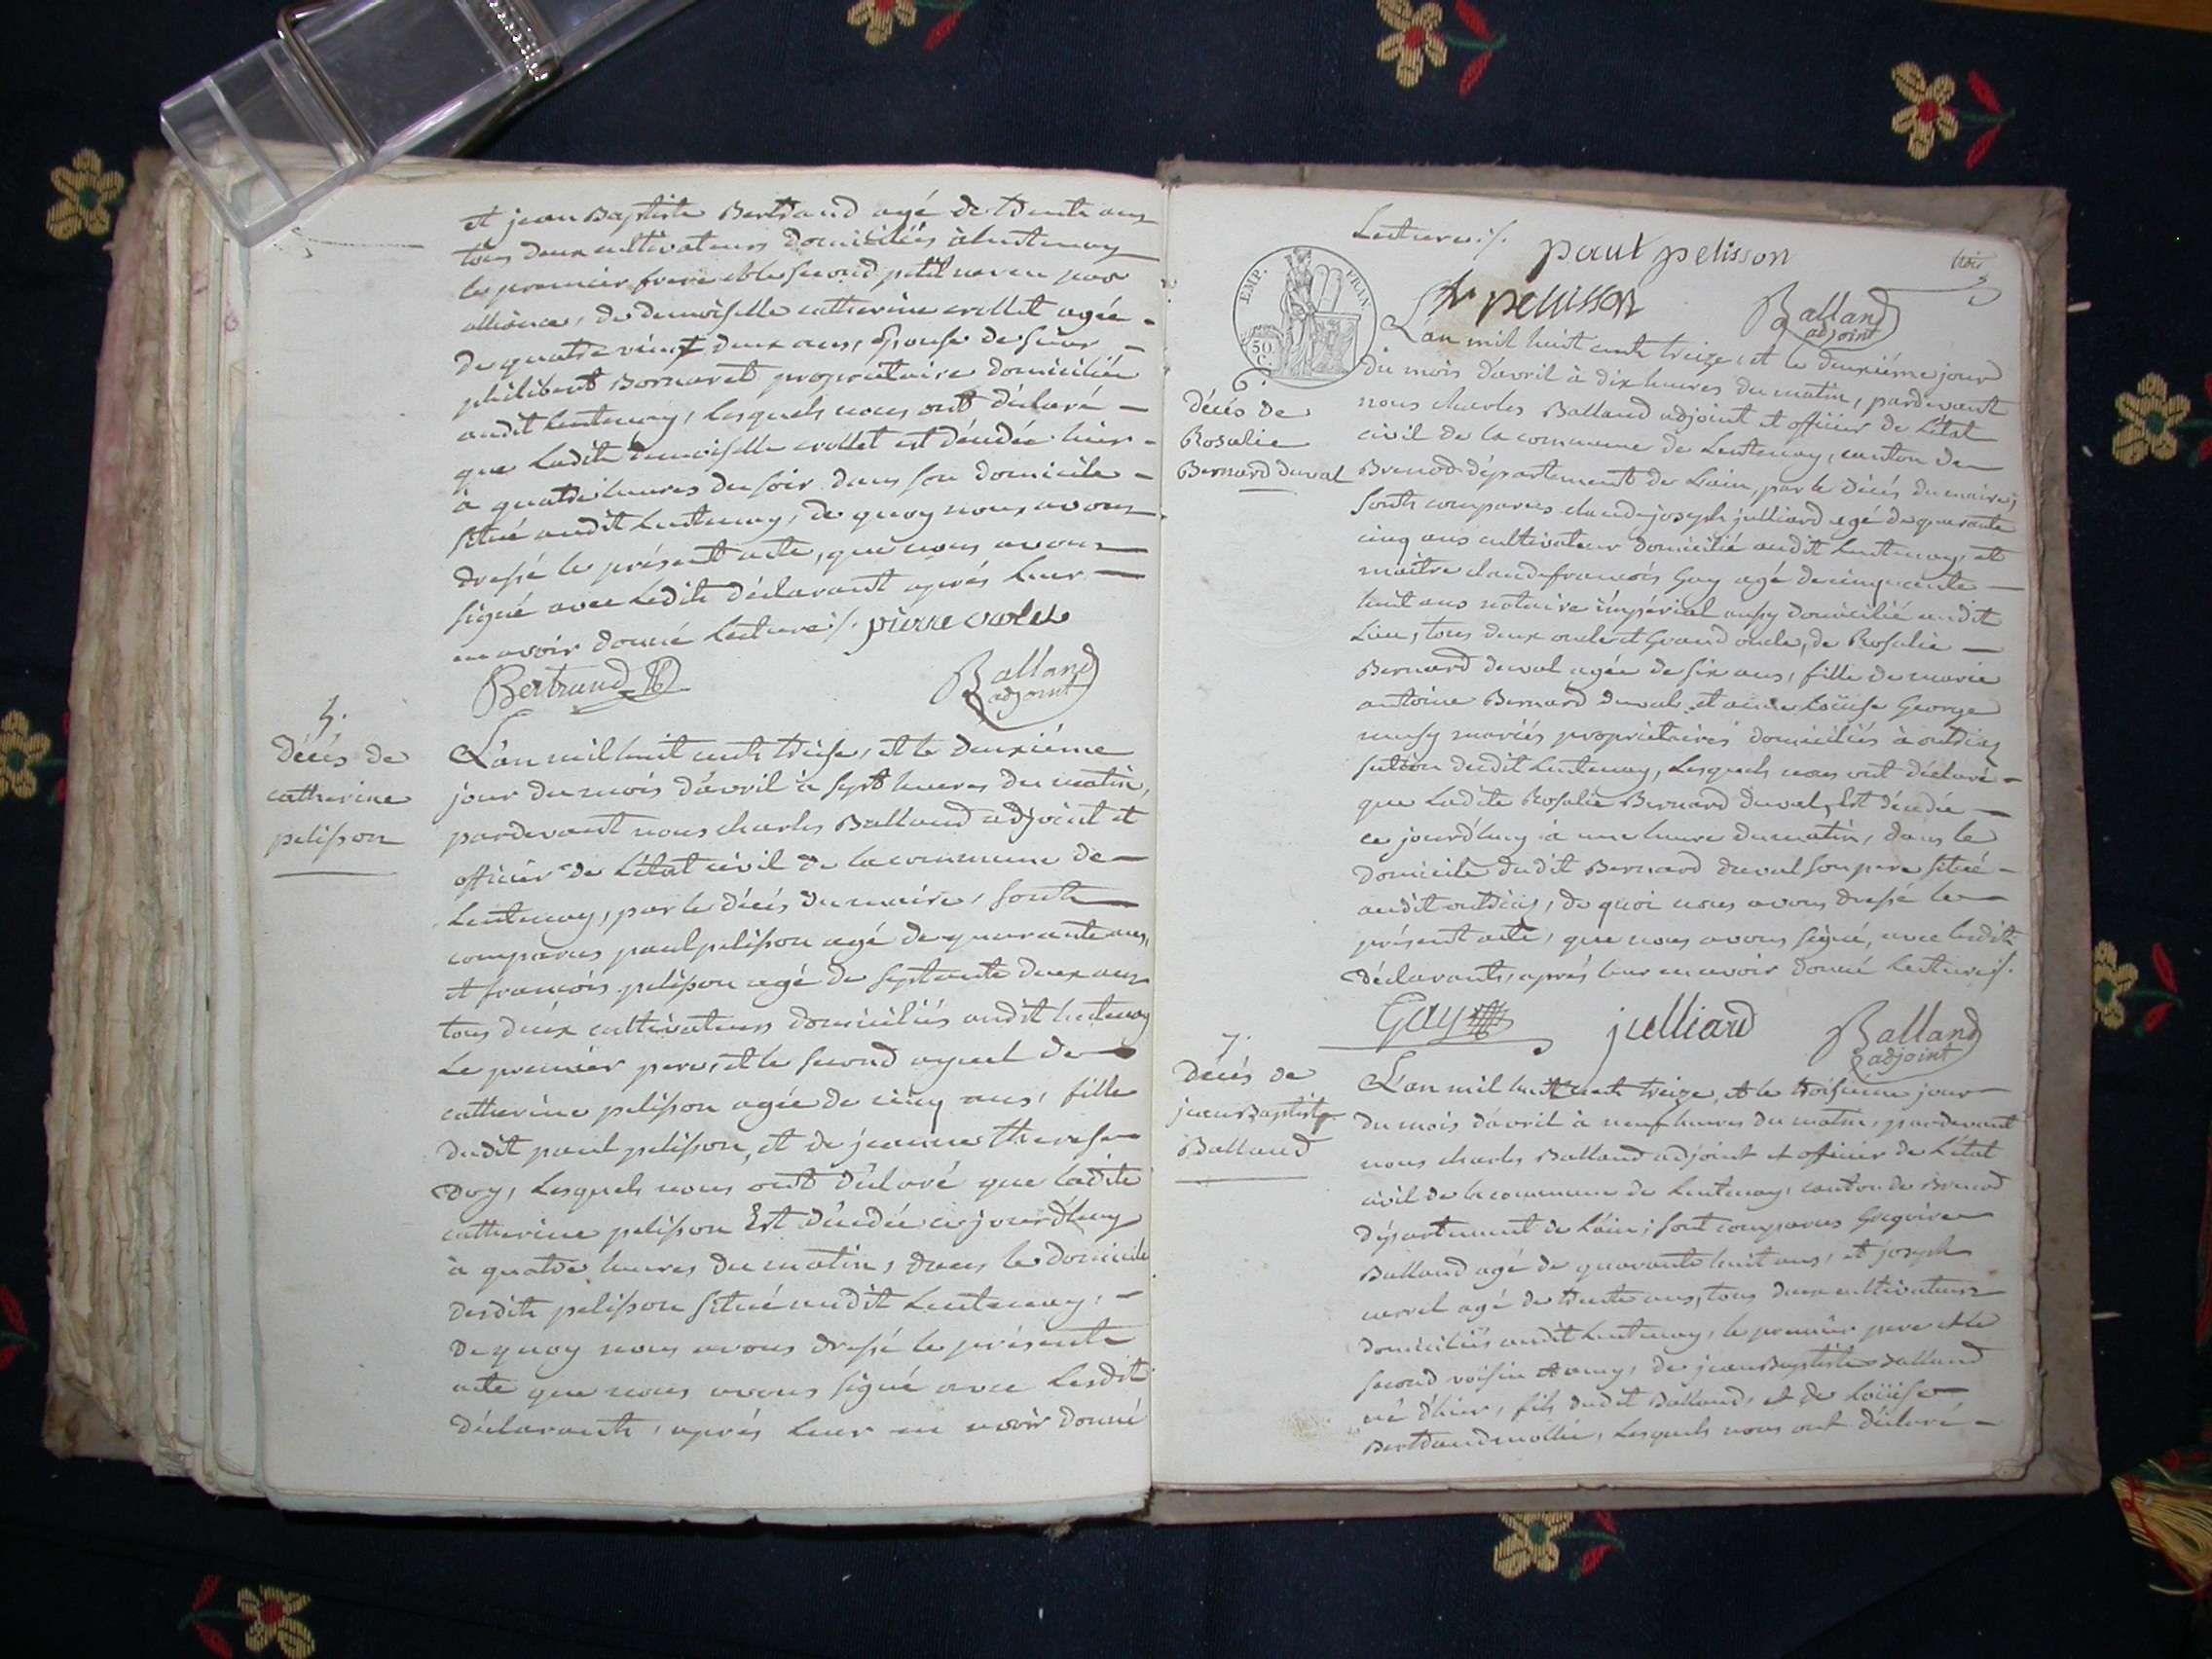 et jean Baptiste Bertrand agé de trente ans
tous deux cultivateurs domiciliés à lentenay
le premier frere et le second petit neveu par
alliance, de demoiselle catherine crollet agée
de quatre vingt deux ans, Epouse de sieur
philibert Bornaret propriétaire domiciliée
audit Lentenay, lesquels nous ont déclaré
que ladite demoiselle crollet est décédée hier
à quatre heures du soir dans son domicile
situé audit Lentenay, de quoy nous avons
dressé le présent acte, que nous avons
signé avec lesdits déclarant après leur
en avoir donné lecture./. pierre
Bertrand Balland
adjoint
5.
Décés de
catherine
pelisson
L'an mil huit cents treise, et le deuxiéme
jour du mois d'avril à sept heures du matin,
pardevant nous charles Balland adjoint et
officier de l'état civil de la commune de
Lentenay, par le décés du maire, sonts
comparus paul pelisson agé de quarante ans,
et francois pelisson agé de septante deux ans
tous deux cultivateurs domiciliés audit lentenay
Le premier pere, et le second ayeul de
catherine pelisson agée de cinq ans, fille
dudit paul pelisson, et de jeanne therese
Doy, lesquels nous ont déclaré que ladite
catherine pelisson Est décédée ce jourd'huy
à quatre heures du matin, dans le domicile
desdits pelisson situé audit Lentenay,
de quoy nous avons dressé le présente
acte que nous avons signé avec lesdit
déclarants, après leur en avoir donné
Lecture./. paul pelisson
pelisson Balland
adjoint
trois
EMP. FRAN.
50
C.
6.
Décés de
Rosalie
Bernard duval
L'an mil huit cents treize, et le deuxiéme jour
du mois d'avril à dix heures du matin, pardevant
nous charles Balland adjoint et officier de l'état
civil de la commune de Lentenay, canton de
Brenod département de L'ain, par le décés du maire,
sonts comparus claude joseph julliard agé de quarante
cinq ans cultivateur domicilié audit Lentenay, et
maitre claude francois Gay agé de cinquante
huit ans notaire impérial aussy domicilié audit
Lieu, tous deux oncle et Grand oncle, de Rosalie
Bernard duval agée de six ans, fille de marie
antoine Bernard duval, et anne Loüise George
mussy mariés propriétaires domiciliés à outriaz
section dudit Lentenay, lesquels nous ont déclaré
que ladite Rosalie Bernard duval, Est décédée
ce jourd'huy à une heure du matin, dans le
domicile dudit Bernard duval son pere situé
audit outriaz, de quoi nous avons dressé le
présent acte, que nous avons signé, avec lesdits
déclarants, après leur en avoir donné lecture./.
Gay julliard Balland
adjoint
7.
Décés de
jean Baptiste
Balland
L'an mil huit cents treize, et le troisieme jour
du mois d'avril à neuf heures du matin, pardevant
nous charles Balland adjoint et officier de L'état
civil de la commune de Lentenay, canton de Brenod
département de L'ain; sont comparus Gregoire
Balland agé de quarante huit ans, et joseph
carrel agé de trente ans, tous deux cultivateurs
domiciliés audit Lentenay, le premier pere et le
second voisin et amy, de jean Baptiste Balland
né d'hier, fils dudit Balland, et de Loüise
Bertrand mollie, lesquels nous ont déclaré